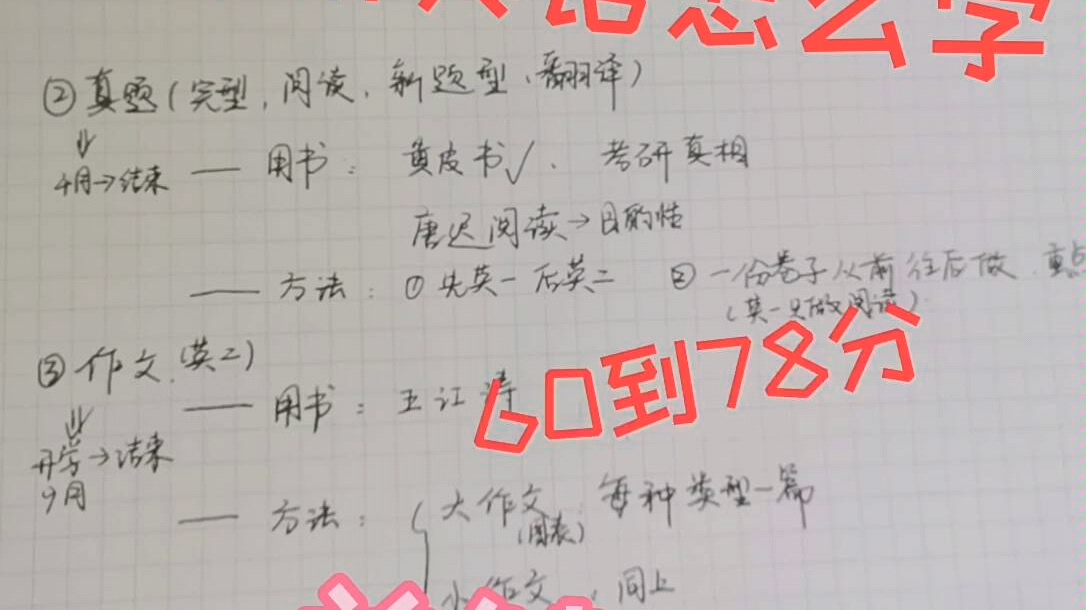 语怎么学
② 真题(完型,阅读,新题型,翻译)
4月→结束 — 用书: 黄皮书√. 考研真相
唐迟阅读→目的性
— 方法: ①先英一后英二 ② 一份卷子从前往后做.重点
(英一只做阅读)
60到78分
③ 作文.(英二)
— 用书: 王江涛
开学→结束
9月
— 方法: { 大作文: 每种类型一篇
(图表)
小作文: 同上